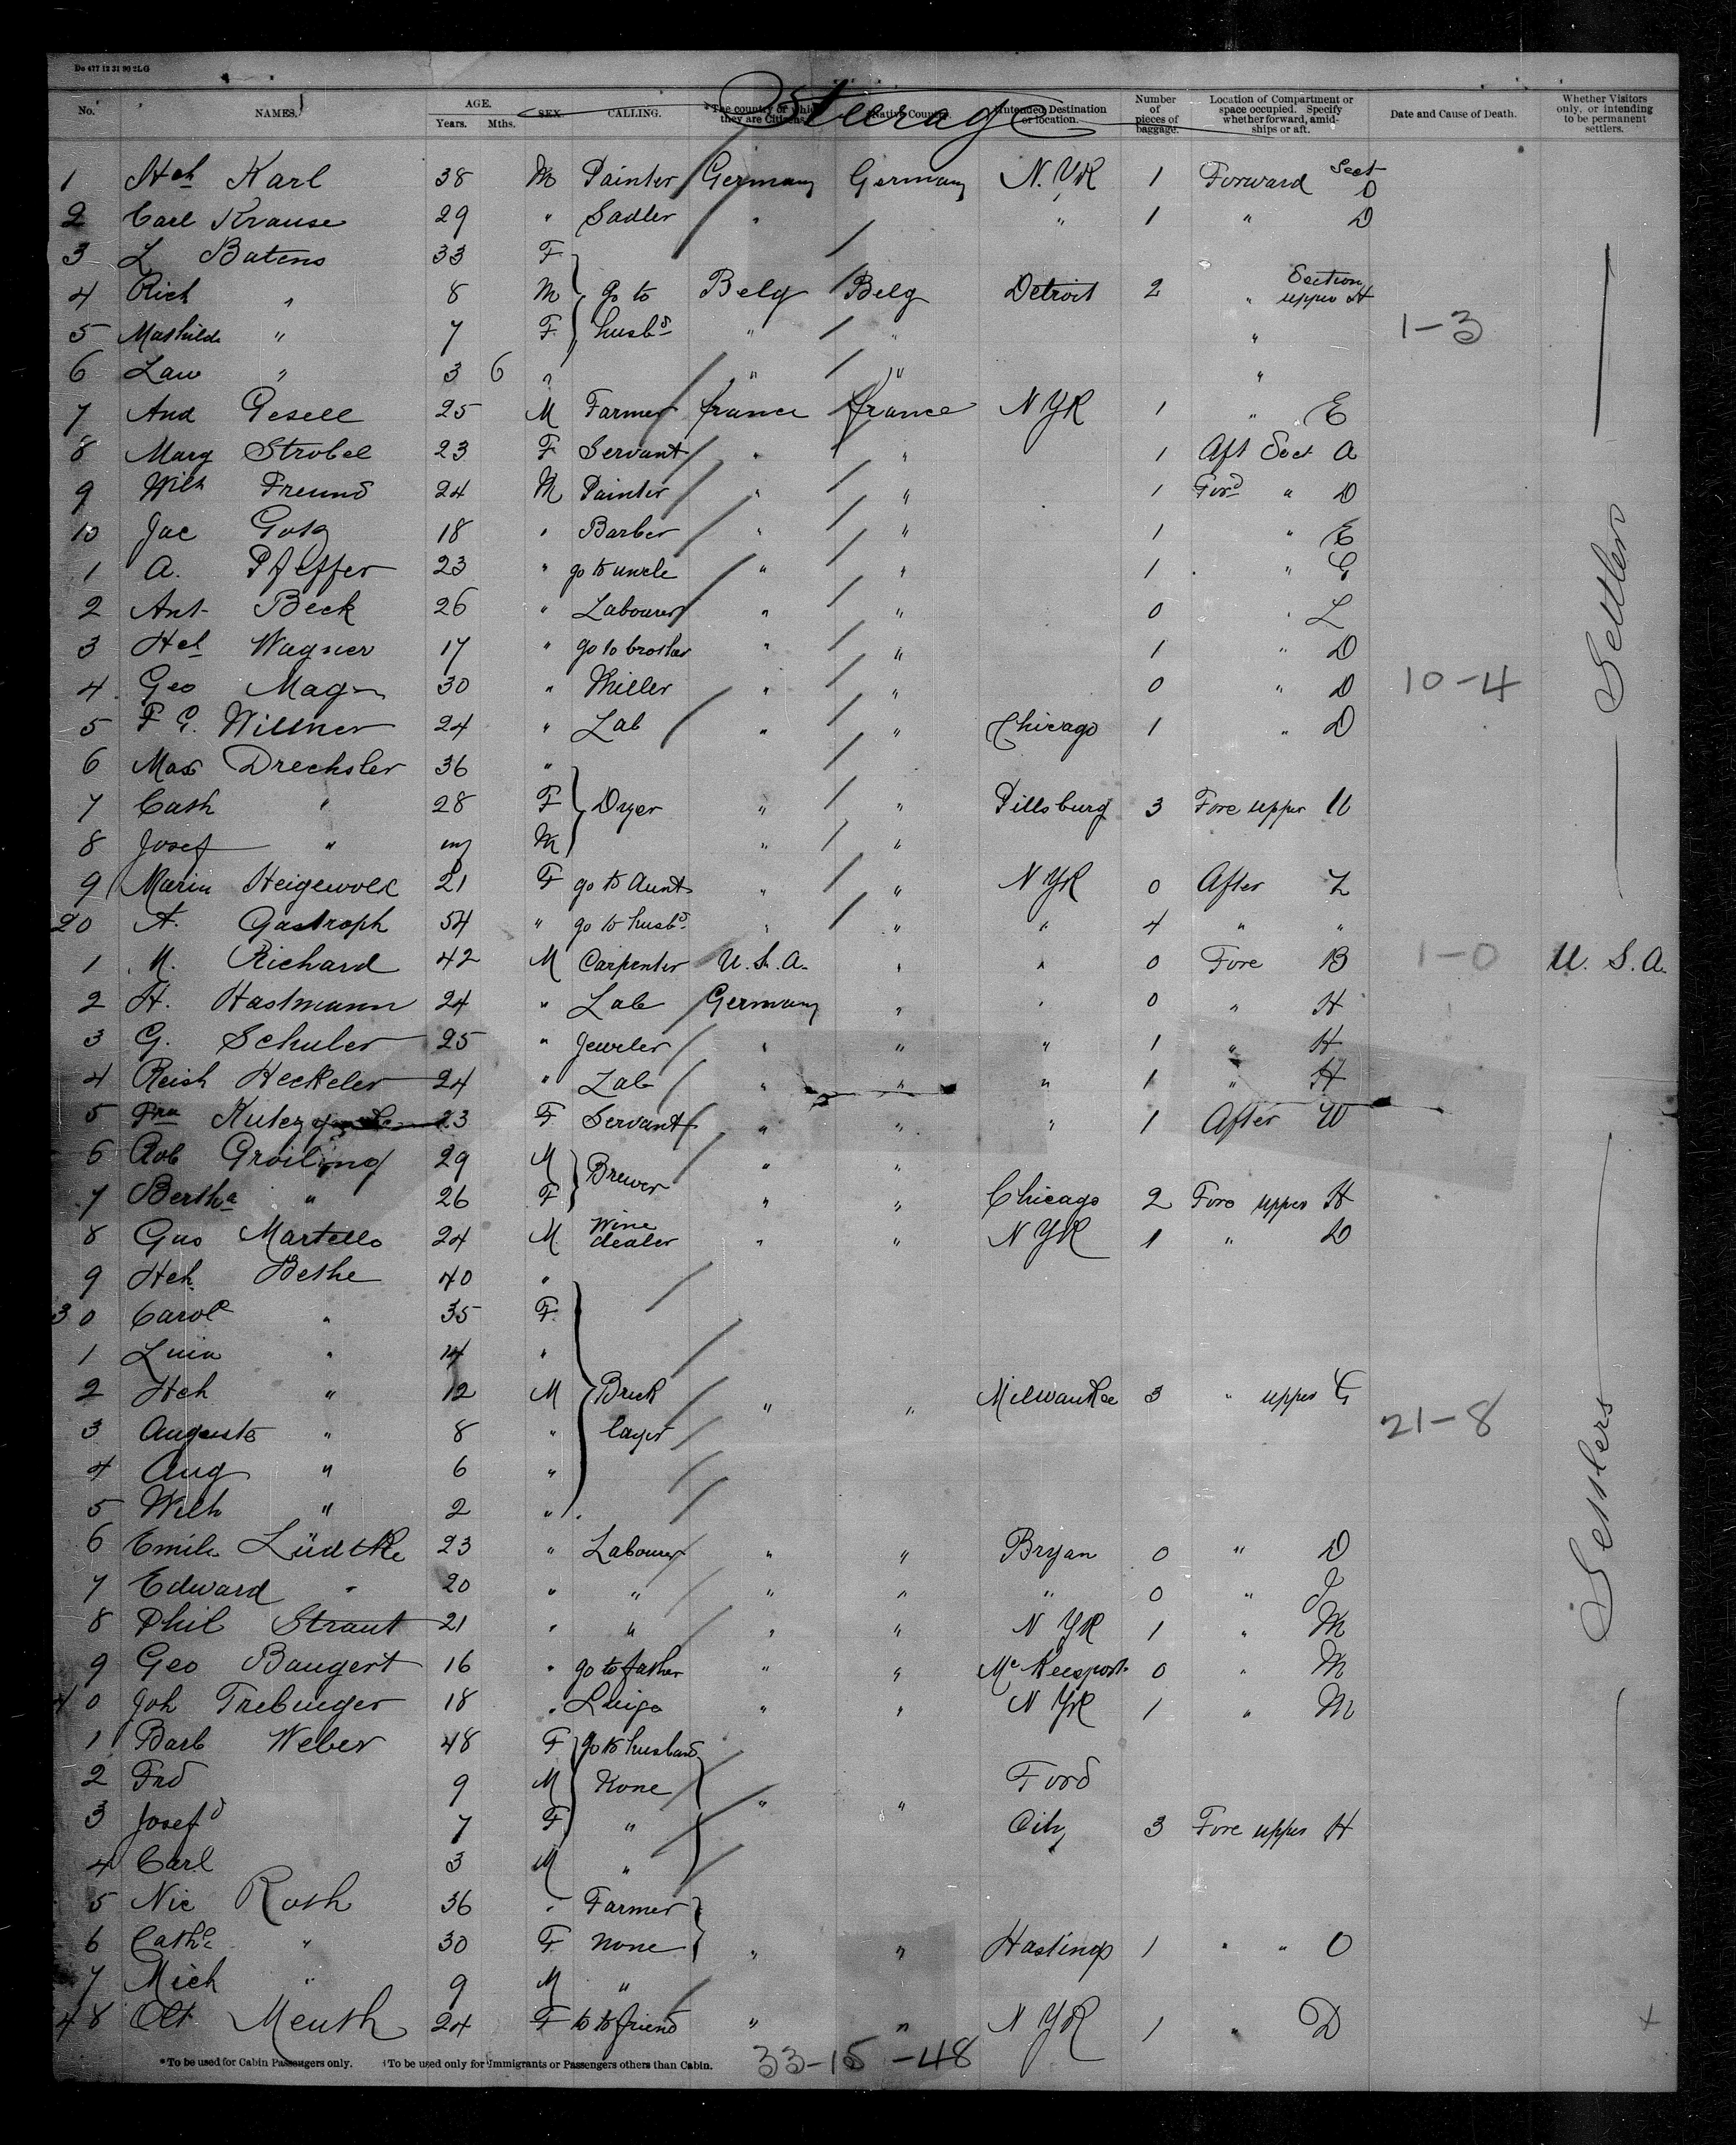 De 477 12 31 90 2LG
Steerage
No. NAMES. AGE. Years. Mths. SEX. CALLING. *The country of which they are Citizens. Native Country. Intended Destination or location. Number of pieces of baggage. Location of Compartment or space occupied. Specify whether forward, amidships or aft. Date and Cause of Death. Whether Visitors only, or intending to be permanent settlers.
1 Hch Karl 38 M Painter Germany Germany N.YR 1 Forward Sect D
2 Carl Krause 29 " Sadler " " 1 " D
3 L Batens 33 F
4 Rich " 8 M go to Belg Belg Detroit 2 " Section upper H
5 Mathilde " 7 F husbd " " " 1-3
6 Law " 3 6 " " " "
7 And Gesell 25 M Farmer france france NYR 1 " E
8 Marg Strobel 23 F Servant " " 1 Aft Sect A
9 Wilh Freund 24 M Painter " " 1 Ford " D
10 Jac Gotz 18 " Barber " " 1 " E
1 A. Pfeffer 23 " go to uncle " " 1 " G
2 Ant Beck 26 " Labourer " " 0 " L
3 Hch Wagner 17 " go to brother " " 1 " D
4 Geo Magn 30 " Miller " " 0 " D 10-4
5 F G. Willner 24 " Lab " " Chicago 1 " D
6 Max Drechsler 36 "
7 Cath " 28 F Dryer " " Pittsburg 3 Fore upper U
8 Josef " M " "
9 Marin Heigewolk 21 F go to Aunt " " NYR 0 After L
20 A. Gastroph 54 " go to husbd " " " 4 " "
1 M. Richard 42 M Carpenter U.S.A. " " 0 Fore B 1-0 U.S.A.
2 H. Hastmann 24 " Lab Germany " " 0 " H
3 G. Schuler 25 " Jeweler " " " 1 " H
4 Reich Heckeler 24 " Lab " " " 1 " H
5 Fra 23 F Servant " " " 1 After W
6 Rob Groiling 29 M Brewer " "
7 Bertha " 26 F " " Chicago 2 Fore upper H
8 Gus Martello 24 M Wine dealer " " NYR 1 " D
9 Hch Bethe 40 "
30 Carole " 35 F
1 " 14 "
2 Hch " 12 M Brick " " Milwaukee 3 " upper G
3 Auguste " 8 " layer 21-8
4 Aug " 6 "
5 Wilh " 2 "
6 Emile Lüdtke 23 " Labourer " " Bryan 0 " D
7 Edward " 20 " " " " " 0 " J
8 Phil Straut 21 " " " " NYR 1 " M
9 Geo Baugert 16 " go to father " " McKeesport 0 " M
40 Joh Trebinger 18 " " " NYR 1 " M
1 Barb Weber 48 F go to husband
2 Frd 9 M None " " Ford
3 Josefd 7 F " City 3 Fore upper H
4 Carl 3 M "
5 Nic Roth 36 " Farmer
6 Cathe " 30 F none " " Hastings 1 " " O
7 Mich " 9 M "
48 Meuth 24 F to to friend " " NYR 1 " D
Settlers
Settlers
*To be used for Cabin Passengers only. †To be used only for Immigrants or Passengers others than Cabin.
33-15-48